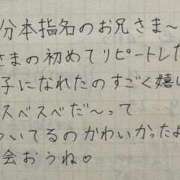 分本指名のお兄さま〜
さまの初めてリピートした
子になれたのすごく嬉し
スベスベだ〜って
ついてるのかわいかったよ
会おうね♡